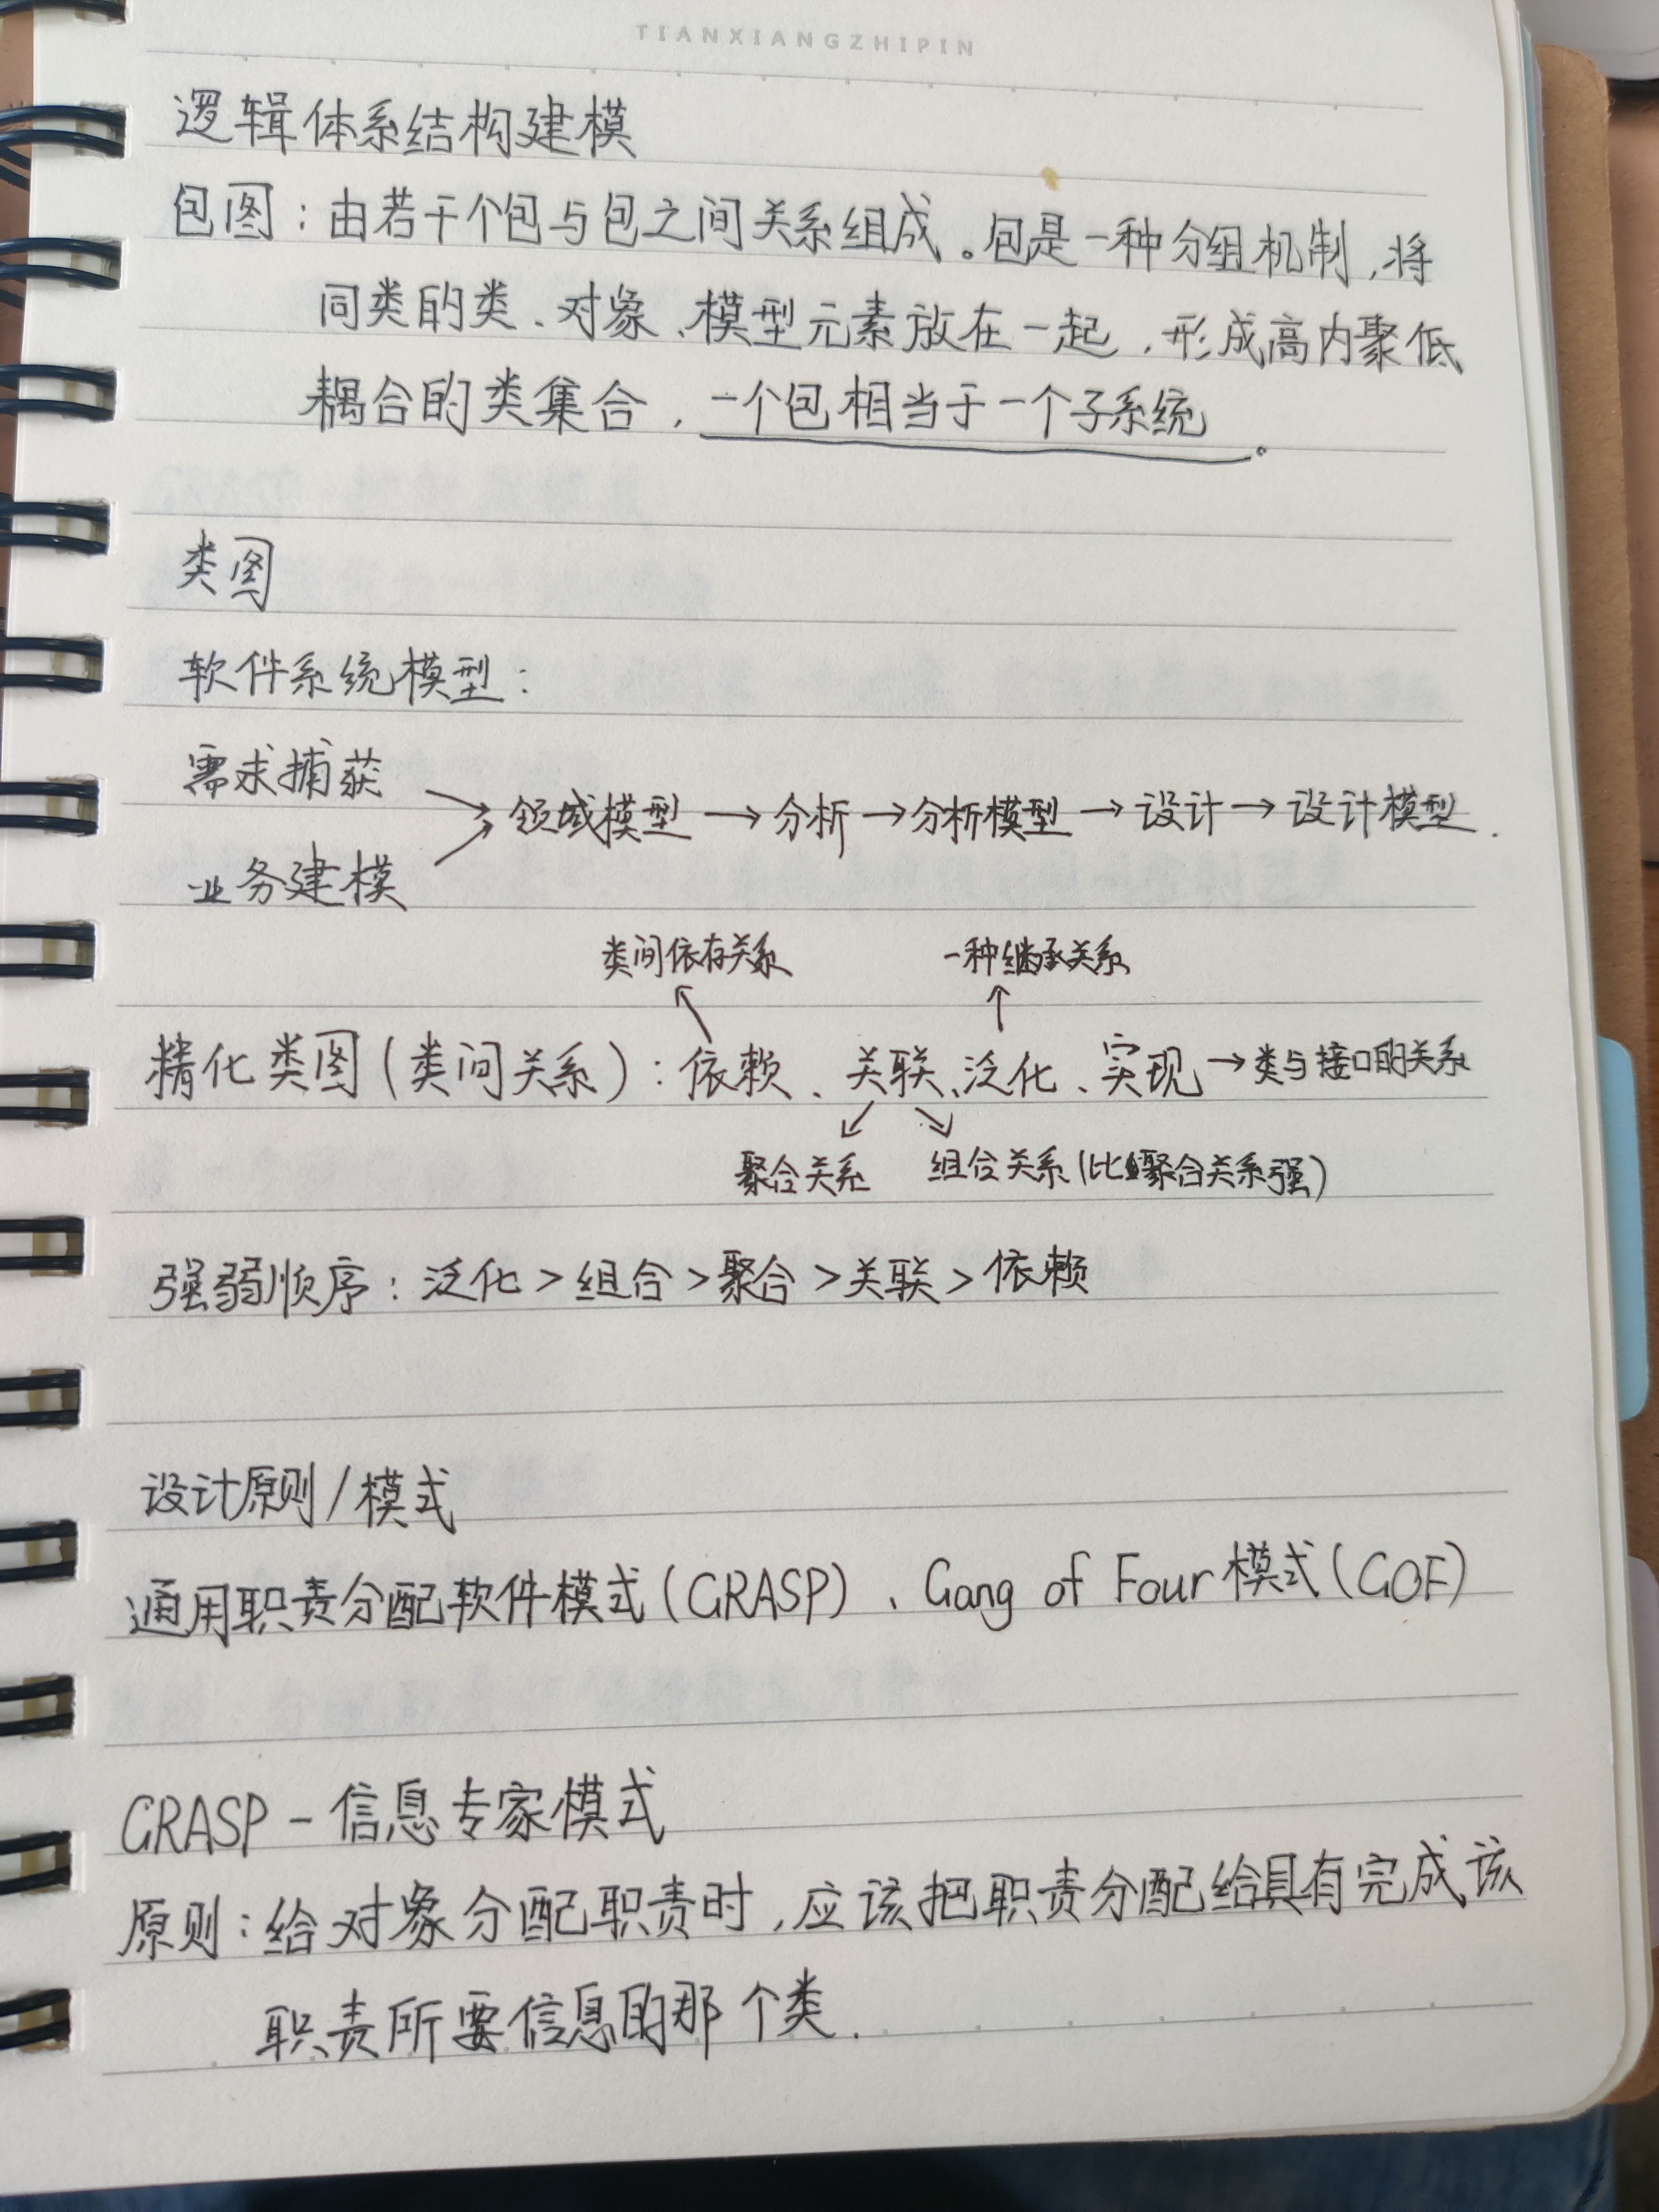 TIANXIANGZHIPIN
逻辑体系结构建模
包图：由若干个包与包之间关系组成。包是一种分组机制，将
同类的类、对象、模型元素放在一起，形成高内聚低
耦合的类集合，一个包相当于一个子系统。
类图
软件系统模型：
需求捕获
→领域模型→分析→分析模型→设计→设计模型.
业务建模
类间依存关系 一种继承关系
精化类图(类间关系)：依赖、关联、泛化、实现→类与接口的关系
聚合关系 组合关系(比聚合关系强)
强弱顺序：泛化>组合>聚合>关联>依赖
设计原则/模式
通用职责分配软件模式(GRASP)、Gang of Four模式(GOF)
GRASP-信息专家模式
原则：给对象分配职责时，应该把职责分配给具有完成该
职责所要信息的那个类.